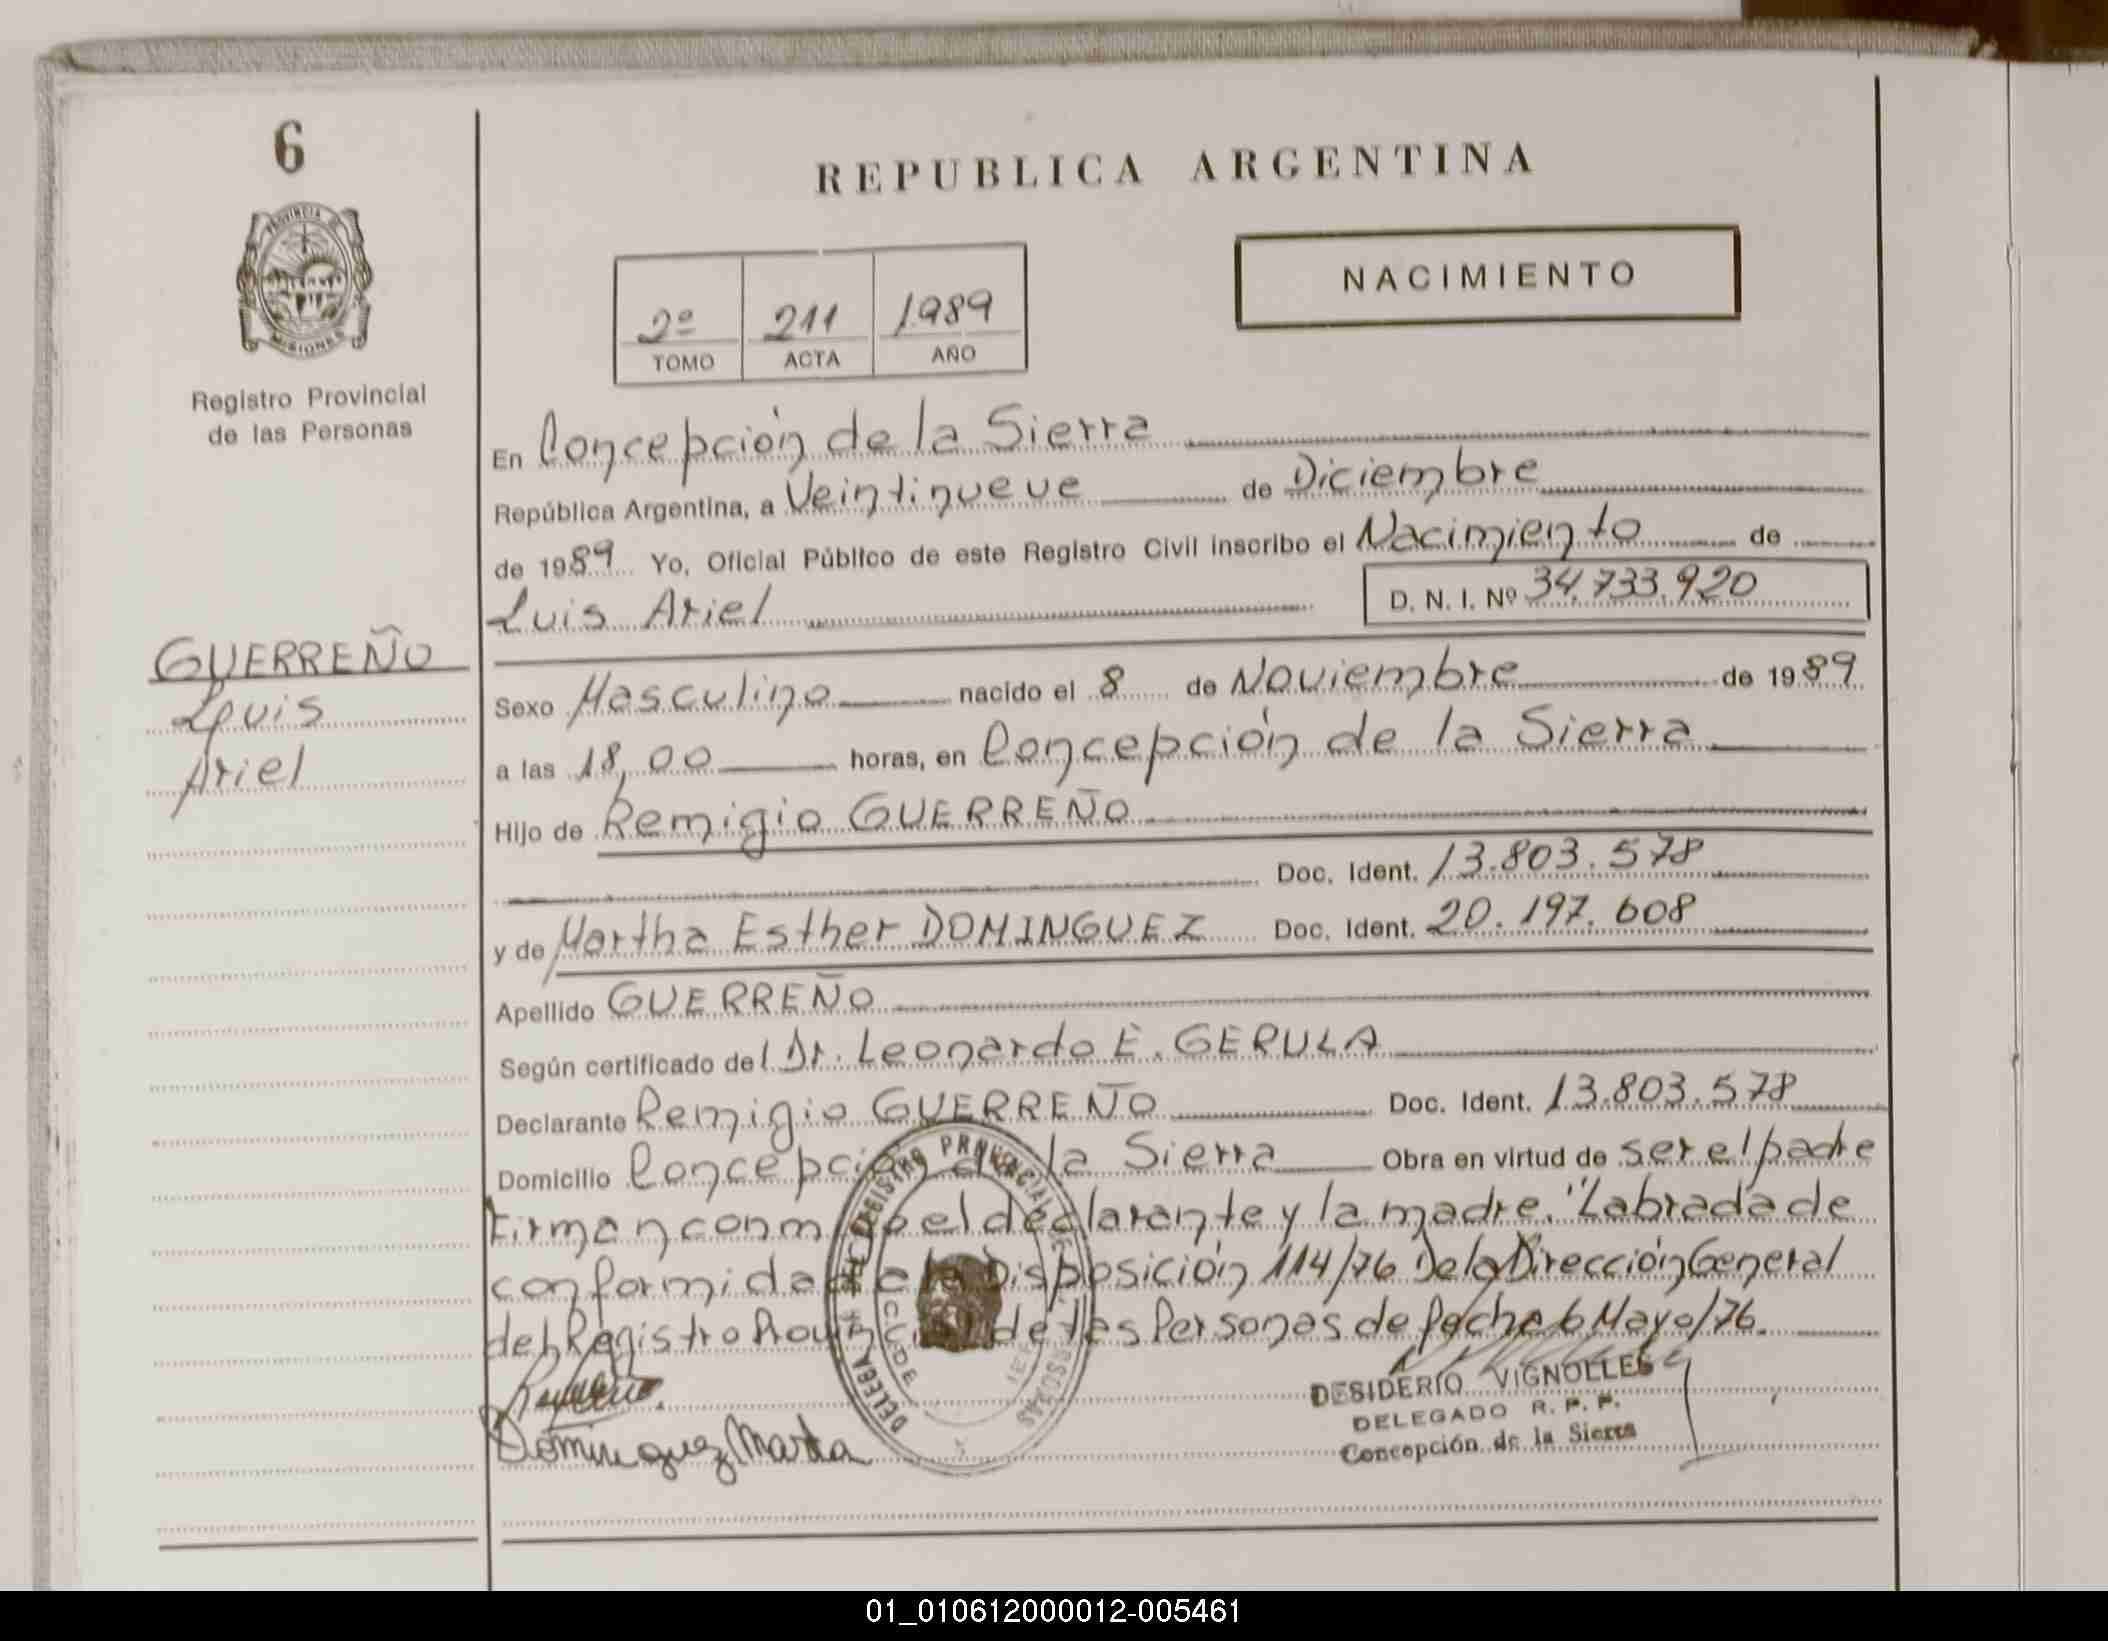 6
REPUBLICA ARGENTINA
PROVINCIA DE
MISIONES
Registro Provincial
de las Personas
NACIMIENTO
2º 211 1989
TOMO ACTA AÑO
En Concepción de la Sierra
República Argentina, a Veintinueve de Diciembre
de 1989 Yo, Oficial Público de este Registro Civil inscribo el Nacimiento de
Luis Ariel D. N. I. Nº 34.733.920
GUERREÑO
Luis
Ariel
Sexo Masculino nacido el 8 de Noviembre de 1989
a las 18,00 horas, en Concepción de la Sierra
Hijo de Remigio GUERREÑO
Doc. Ident. 13.803.578
y de Martha Esther DOMINGUEZ Doc. Ident. 20.197.608
Apellido GUERREÑO
Según certificado del Dr. Leonardo E. GERULA
Declarante Remigio GUERREÑO Doc. Ident. 13.803.578
Domicilio Concepción de la Sierra Obra en virtud de ser el padre
Firman conmigo el declarante y la madre. "Labrada de
conformidad a la Disposición 114/76 De la Dirección General
del Registro Provincial de las Personas de fecha 6 Mayo/76.
DESIDERIO VIGNOLLES
DELEGADO R. P. P.
Concepción de la Sierra
Dominguez Marta
01_010612000012-005461